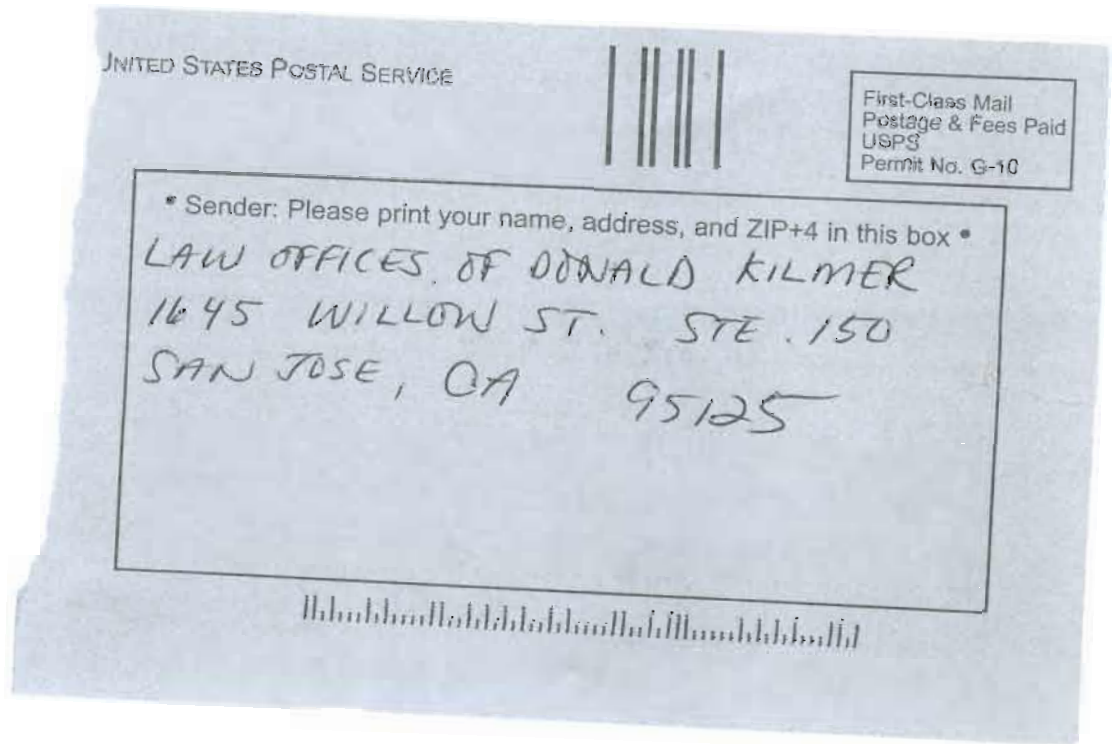 UNITED STATES POSTAL SERVICE
First-Class Mail
Postage & Fees Paid
USPS
Permit No. G-10
• Sender: Please print your name, address, and ZIP+4 in this box •
LAW OFFICES OF DONALD KILMER
1645 WILLOW ST. STE. 150
SAN JOSE, CA 95125